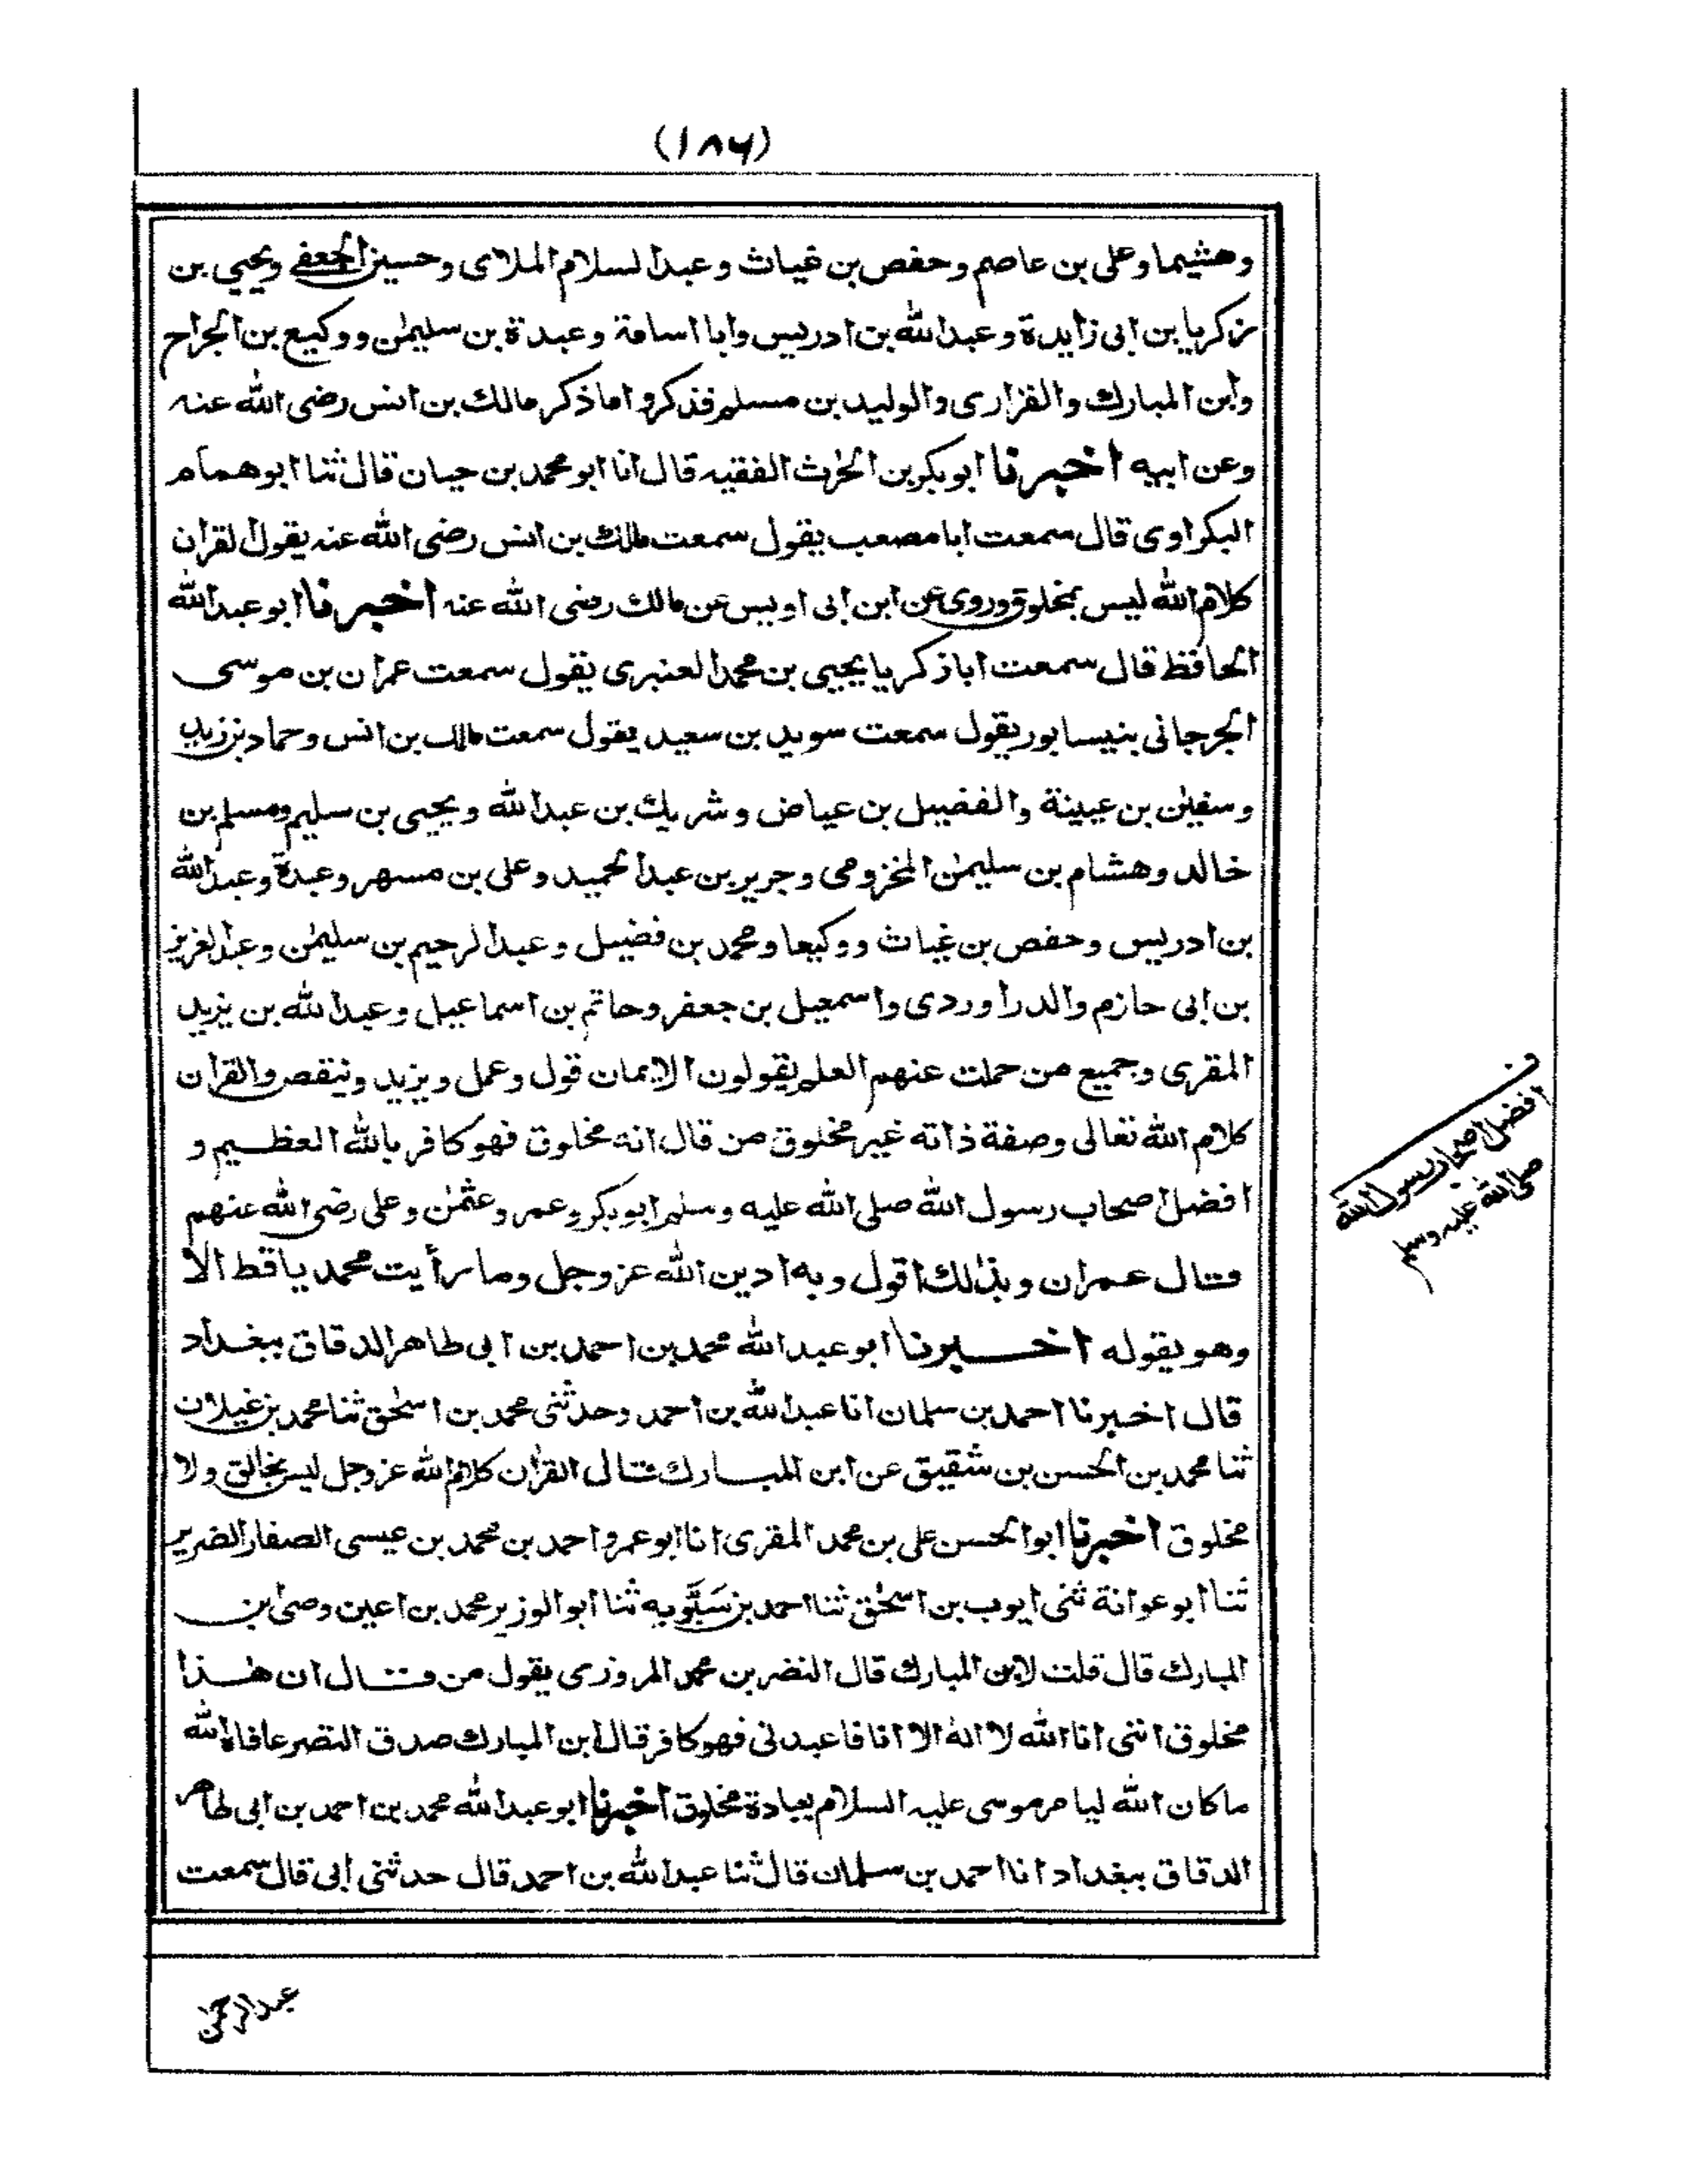 (١٨٦)
وهشيما وعلى بن عاصم وحفص بن غياث وعبد السلام الملائى وحسين الجعفى ويحيى بن
زكريا بن ابى زايدة وعبد الله بن ادريس وابا اسامة وعبدة بن سليمٰن ووكيع بن الجراح
وابن المبارك والفزارى والوليد بن مسلم فذكروا ما ذكر مالك بن انس رضى الله عنه
وعن ابيه اخبرنا ابو بكر بن الحٰرث الفقيه قال انا ابو محمد بن حيان قال ثنا ابو همام
البكراوى قال سمعت ابا مصعب يقول سمعت مالك بن انس رضى الله عنه يقول القران
كلام الله ليس بمخلوق وروى عن ابن ابى اويس عن مالك رضى الله عنه اخبرنا ابو عبد الله
الحافظ قال سمعت ابا زكريا يحيى بن محمد العنبرى يقول سمعت عمران بن موسى
الجرجانى بنيسابور يقول سمعت سويد بن سعيد يقول سمعت مالك بن انس وحماد بن زيد
وسفيٰن بن عيينة والفضيل بن عياض وشريك بن عبد الله ويحيى بن سليم ومسلم بن
خالد وهشام بن سليمٰن المخزومى وجرير بن عبد الحميد وعلى بن مسهر وعبدة وعبد الله
بن ادريس وحفص بن غياث ووكيعا ومحمد بن فضيل وعبد الرحيم بن سليمٰن وعبد العزيز
بن ابى حازم والدراوردى واسمعيل بن جعفر وحاتم بن اسماعيل وعبد الله بن يزيد
المقرى وجميع من حملت عنهم العلم يقولون الايمان قول وعمل ويزيد وينقص والقران
كلام الله تعالى وصفة ذاته غير مخلوق من قال انه مخلوق فهو كافر بالله العظيم و
افضل اصحاب رسول الله صلى الله عليه وسلم ابو بكر وعمر وعثمٰن وعلى رضى الله عنهم
قال عمران وبذلك اقول وبه ادين الله عز وجل وما رأيت محمديا قط الا
وهو يقوله اخبرنا ابو عبد الله محمد بن احمد بن ابى طاهر الدقاق ببغداد
قال اخبرنا احمد بن سلمان انا عبد الله بن احمد وحدثنى محمد بن اسحٰق ثنا محمد بن غيلان
ثنا محمد بن الحسن بن شقيق عن ابن المبارك قال القران كلام الله عز وجل ليس بخالق ولا
مخلوق اخبرنا ابو الحسن على بن محمد المقرى انا ابو عمرو احمد بن محمد بن عيسى الصفار الضرير
ثنا ابو عوانة ثنى ايوب بن اسحٰق ثنا احمد بن شَبّويه ثنا ابو الوزير محمد بن اعين وصى ابن
المبارك قال قلت لابن المبارك قال النضر بن محمد المروزى يقول من قال ان هٰذا
مخلوق اننى انا الله لا الٰه الا انا فاعبدنى فهو كافر قال ابن المبارك صدق النضر عافاه الله
ما كان الله ليامر موسى عليه السلام بعبادة مخلوق اخبرنا ابو عبد الله محمد بن احمد بن ابى طاهر
الدقاق ببغداد انا احمد بن سلمان قال ثنا عبد الله بن احمد قال حدثنى ابى قال سمعت
ف
افضل اصحاب رسول الله
صلى الله عليه وسلم
عبد الرحمٰن